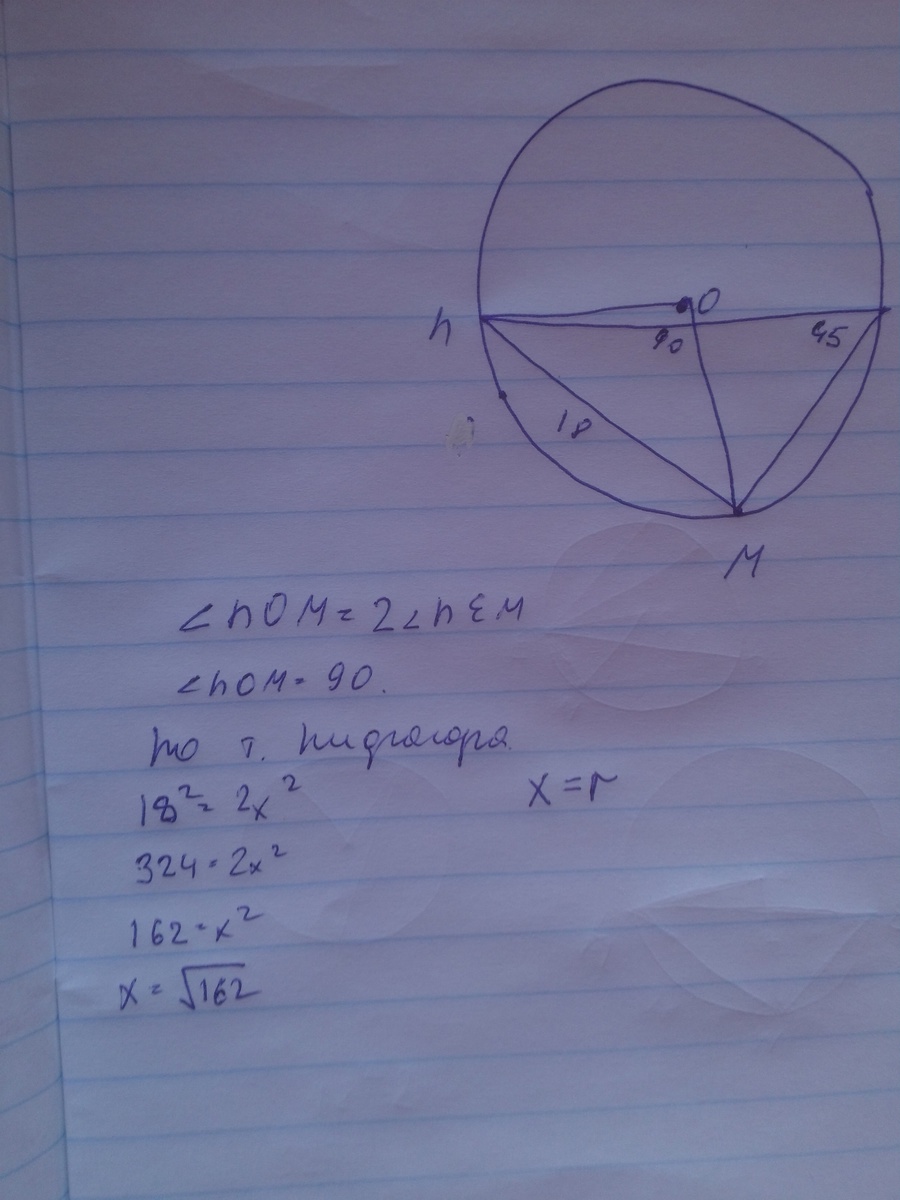 O
h
90
45
18
M
<hOM=2<hEM
<hOM=90.
по т. Пифагора.
18²=2x²
x=r
324=2x²
162=x²
x=√162